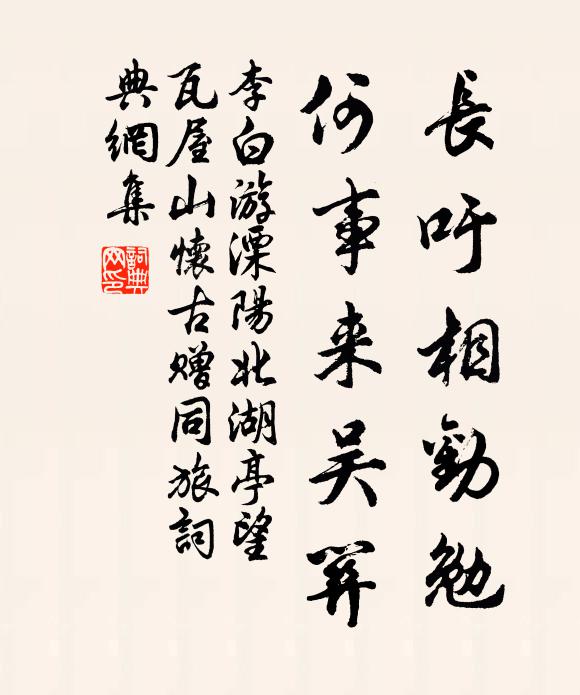 長吁相勸勉
何事来吴關
李白游溧陽北湖亭望
瓦屋山懷古贈同旅詞
典網集
詞典
网印